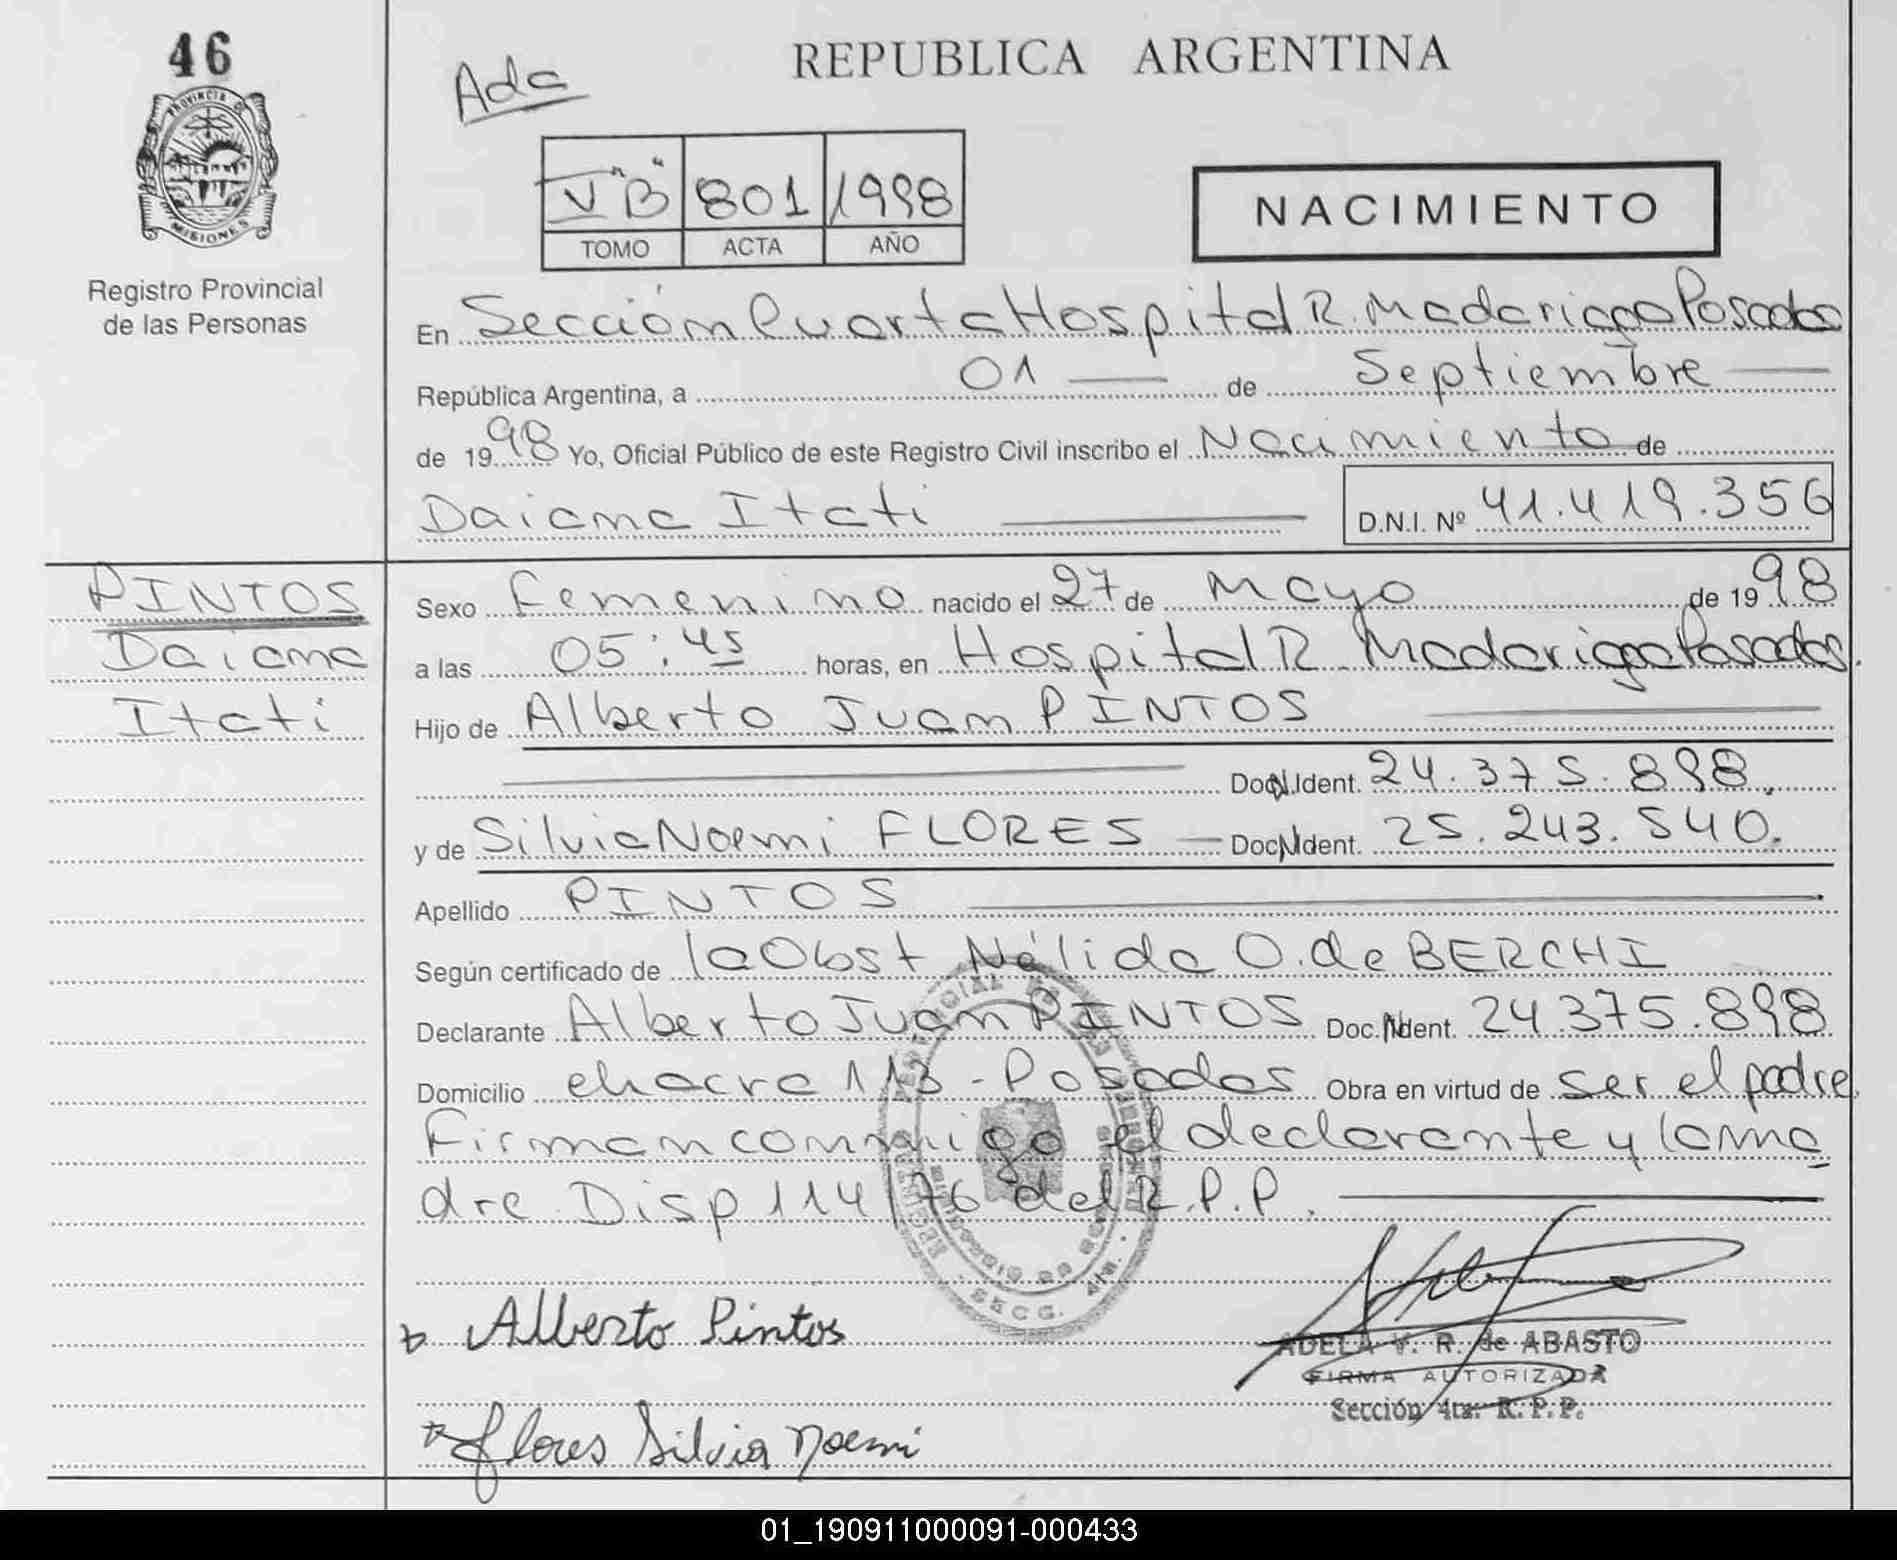 46
PROVINCIA DE
MISIONES
Registro Provincial
de las Personas
Ada
REPUBLICA ARGENTINA
V "B" 801 1998
TOMO ACTA AÑO
NACIMIENTO
En Sección Cuarta Hospital R. Madariaga Posadas
República Argentina, a 01 de Septiembre
de 1998 Yo, Oficial Público de este Registro Civil inscribo el Nacimiento de
Daiana Itati
D.N.I. Nº 41.419.356
PINTOS
Daiana
Itati
Sexo Femenino nacido el 27 de Mayo de 1998
a las 05:45 horas, en Hospital R. Madariaga Posadas.
Hijo de Alberto Juan PINTOS
Doc. N. Ident. 24.375.898.
y de Silvia Noemi FLORES Doc. N. Ident. 25.243.540.
Apellido PINTOS
Según certificado de la Obst Nélida O. de BERCHI
Declarante Alberto Juan PINTOS Doc. N. Ident. 24.375.898
Domicilio chacra 113 - Posadas Obra en virtud de ser el padre.
Firman conmigo el declarante y la ma
dre Disp 114/76 del R.P.P.
Alberto Pintos
ADELA V. R. de ABASTO
FIRMA AUTORIZADA
Sección 4ta. R. P. P.
Flores Silvia Noemi
SECC. 4ta.
01_190911000091-000433